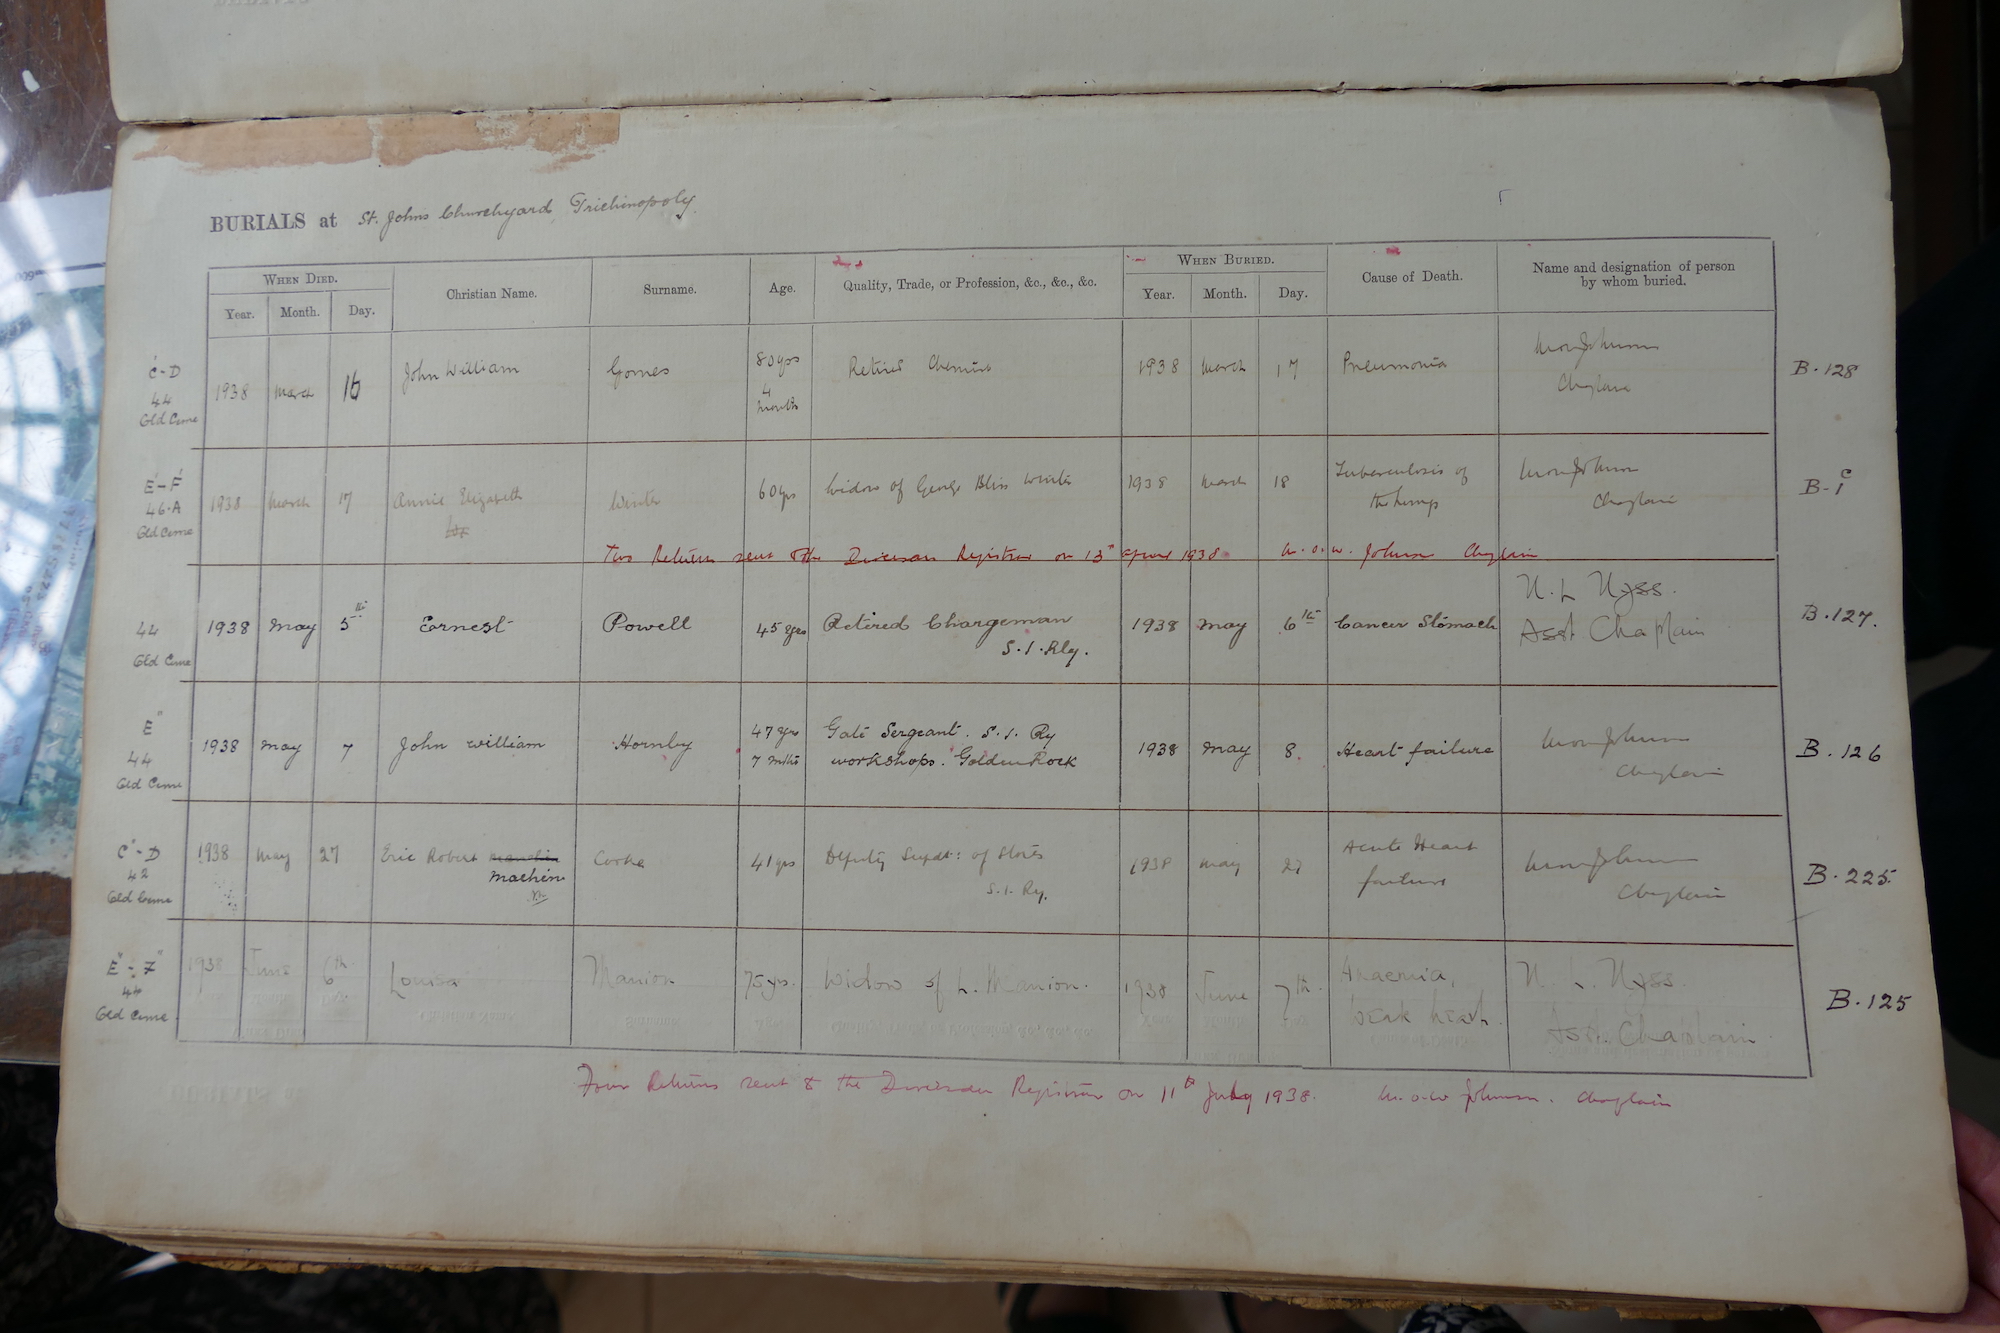 BURIALS at St. Johns Churchyard, Trichinopoly.
WHEN DIED.
Year. Month. Day.
Christian Name.
Surname.
Age.
Quality, Trade, or Profession, &c., &c., &c.
WHEN BURIED.
Year. Month. Day.
Cause of Death.
Name and designation of person
by whom buried.
C'-D
44
Old Ceme
1938 March 16 John William Gomes 80 yrs
4
months
Retired Chemist 1938 March 17 Pneumonia
Johnson
Chaplain
B.128
E'-F'
46.A
Old Ceme
1938 March 17 Annie Elizabeth Winter 60 yrs Widow of George Bliss Winter 1938 March 18 Tuberculosis of
the lungs
Johnson
Chaplain
B-1 c
Two Returns sent to the Diocesan Registrar on 13th April 1938. M.O.W. Johnson Chaplain
44
Old Ceme
1938 May 5th Ernest Powell 45 yrs Retired Chargeman
S.I.Rly.
1938 May 6th Cancer Stomach
N. L Nyss.
Asst. Chaplain
B.127.
E"
44
Old Ceme
1938 May 7 John William Hornby 47 yrs
7 mths
Gate Sergeant. S.I. Ry
workshops. Golden Rock
1938 May 8. Heart failure
Johnson
Chaplain
B.126
C'-D
42
Old Ceme
1938 May 27 Eric Robert
Machin
Cooke 41 yrs Deputy Supdt: of Stores
S.I. Ry.
1938 May 27 Acute Heart
failure
Johnson
Chaplain
B.225.
E"-F"
44
Old Ceme
1938 June 6th Louisa Manion 75 yrs. Widow of L. Manion. 1938 June 7th. Anaemia,
weak heart.
N. L. Nyss.
Asst. Chaplain.
B.125
Four Returns sent to the Diocesan Registrar on 11th July 1938. M.O.W Johnson. Chaplain